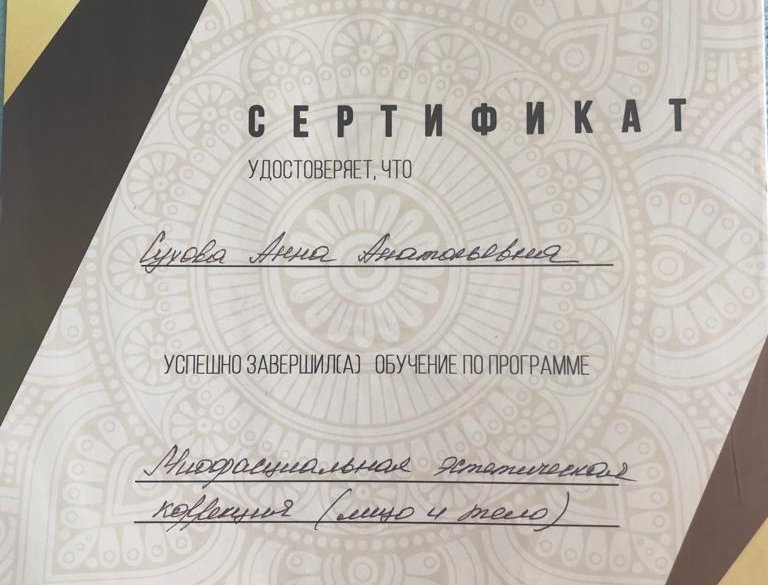 СЕРТИФИКАТ
УДОСТОВЕРЯЕТ, ЧТО
Сухова Анна Анатольевна
УСПЕШНО ЗАВЕРШИЛ(А) ОБУЧЕНИЕ ПО ПРОГРАММЕ
Миофасциальная эстетическая
коррекция (лицо и тело)